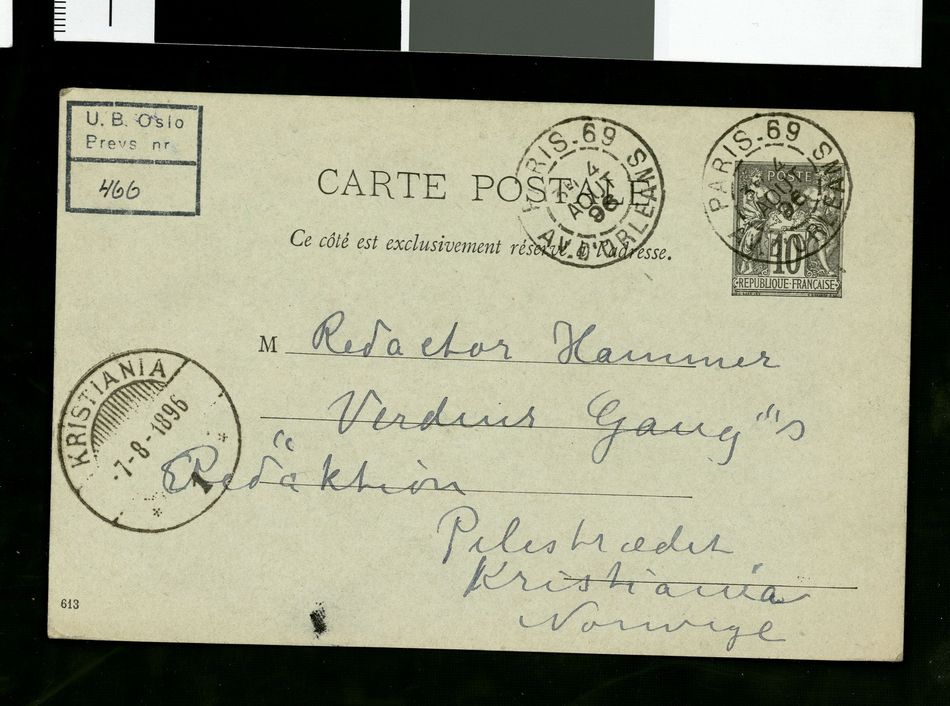 U. B. Oslo
Brevs nr.
466
CARTE POSTALE
Ce côté est exclusivement réservé à l'adresse.
PARIS-69
4
AOUT
96
AV. D'ORLEANS
PARIS-69
4
AOUT
96
AV. D'ORLEANS
POSTE
10
REPUBLIQUE FRANÇAISE
M Redactor Hammer
Verdens Gang"s
Redaktion
Pilestrædet
Kristiania
Norwege
KRISTIANIA
-7-8-1896
1
613